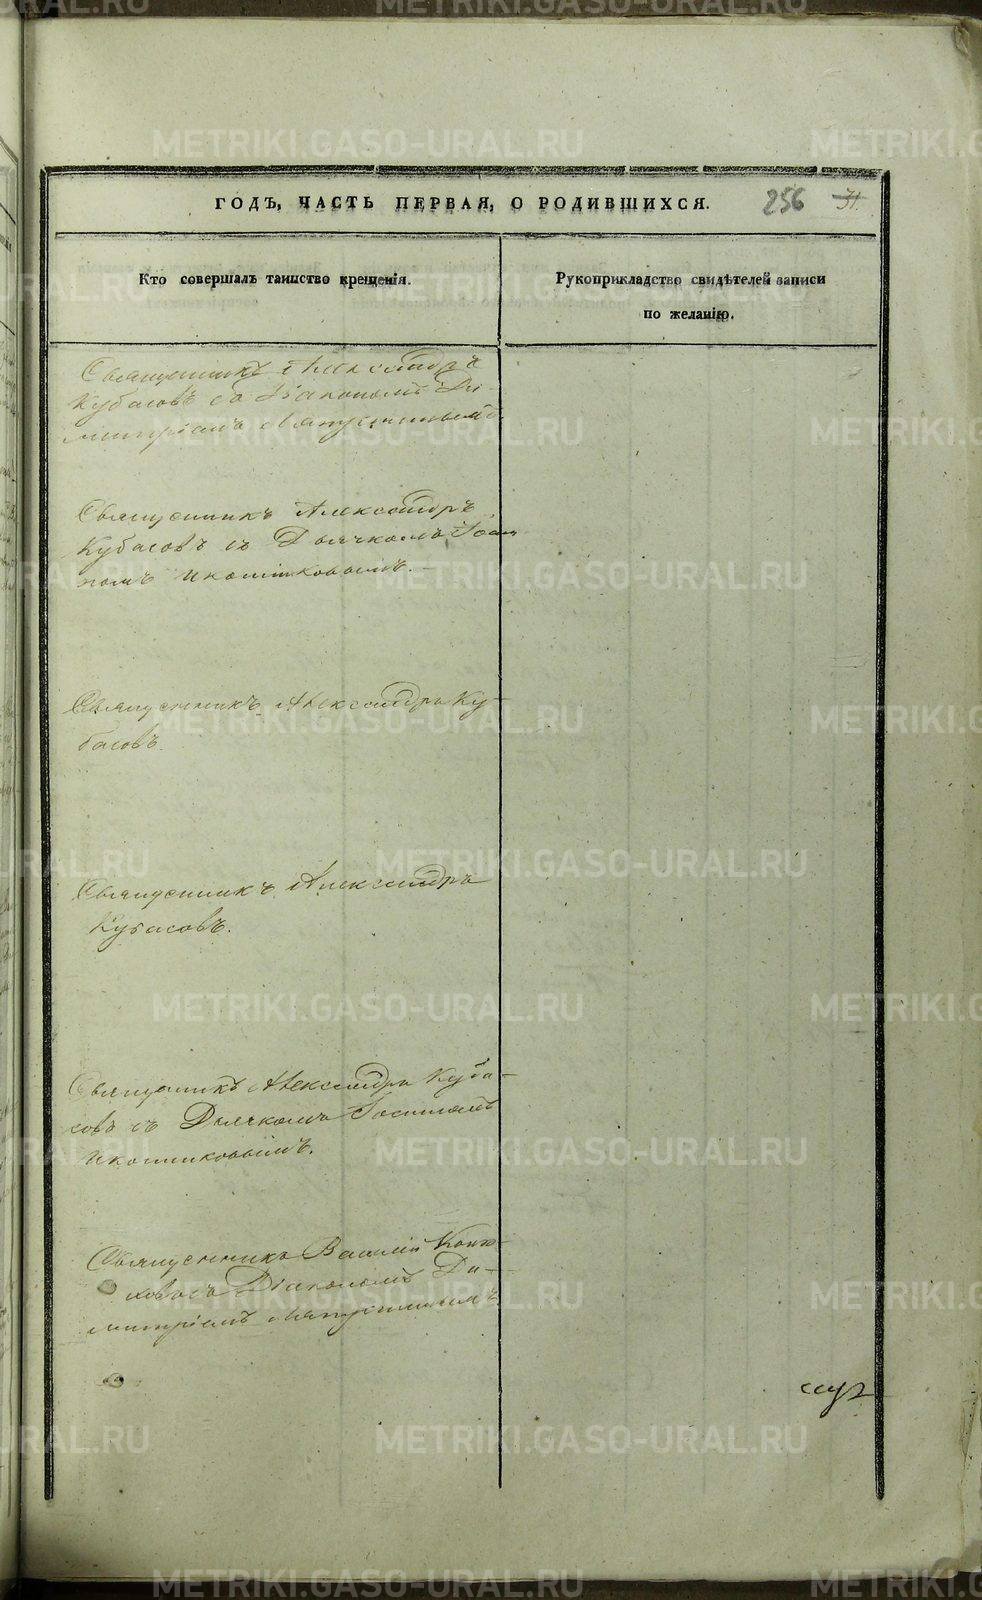 ГОДЪ, ЧАСТЬ ПЕРВАЯ, О РОДИВШИХСЯ. 256 31.
Кто совершалъ таинство крещенія.
Рукоприкладство свидѣтелей записи
по желанію.
Священникъ Александръ
Кубасовъ со Діакономъ Ди-
митріемъ
Священникъ Александръ
Кубасовъ съ Дьячкомъ Іоан
номъ Иконниковымъ.
Священникъ Александръ Ку-
басовъ.
Священникъ Александръ
Кубасовъ.
Священникъ Александръ Куба-
совъ съ Дьячкомъ Іоанномъ
Иконниковымъ.
Священникъ Василій
Діакономъ Ди-
митріемъ
METRIKI.GASO-URAL.RU